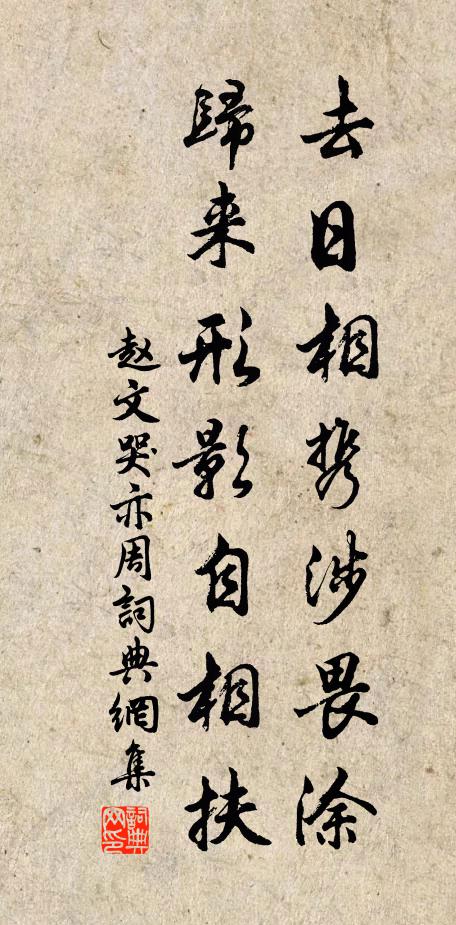 去日相携涉畏涂
歸来形影自相扶
赵文哭亦周詞典網集
詞典网印